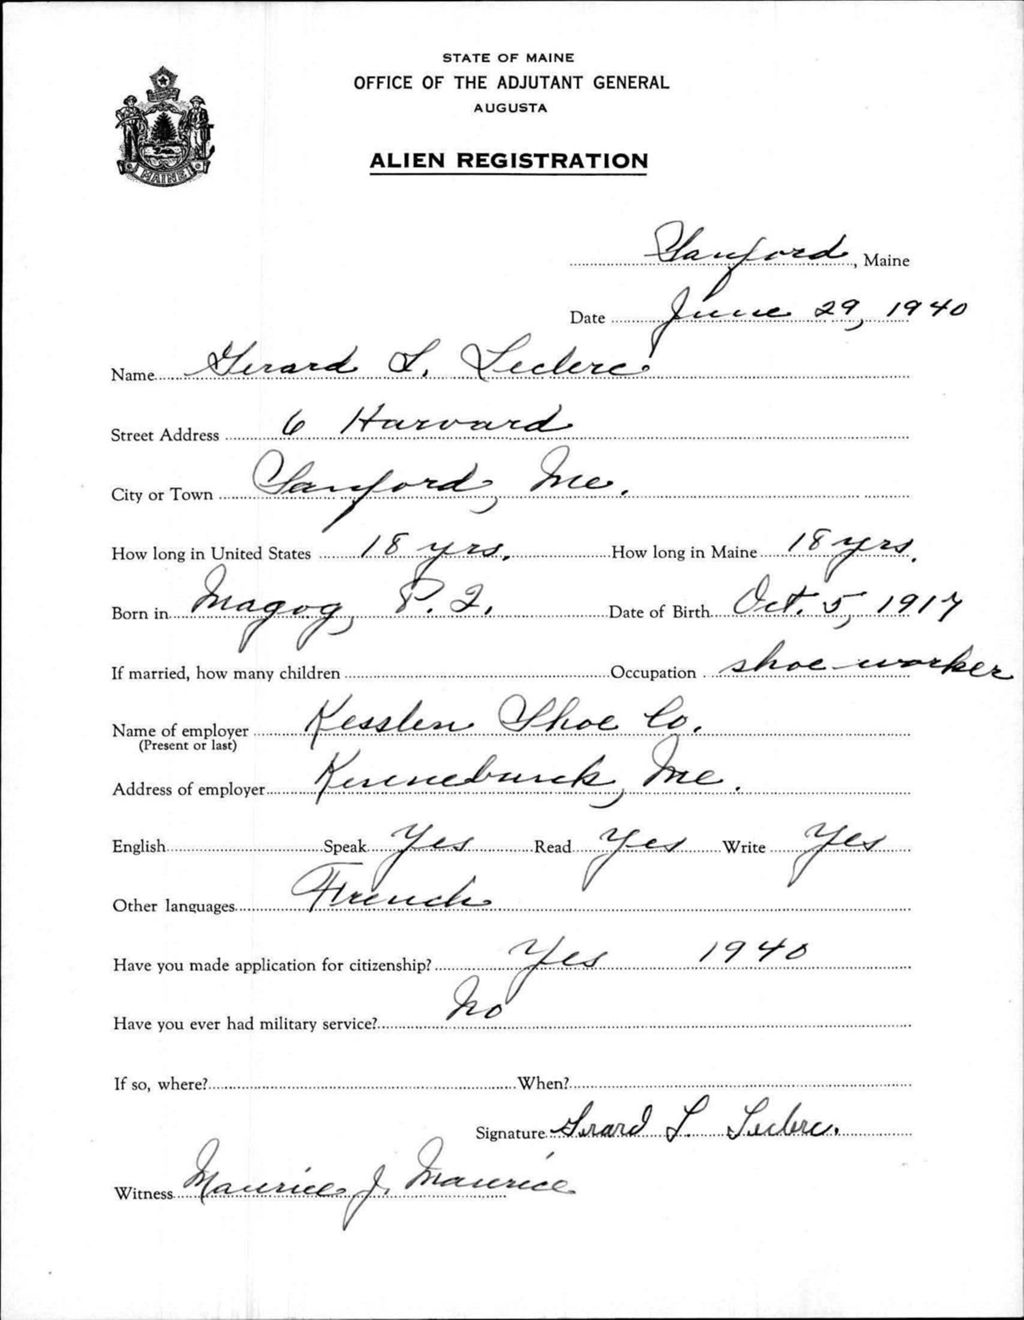 STATE OF MAINE
OFFICE OF THE ADJUTANT GENERAL
AUGUSTA
MAINE
ALIEN REGISTRATION
Sanford, Maine
Date June 29, 1940
Name Gerard L. Leclerc
Street Address 6 Harvard
City or Town Sanford, Me.
How long in United States 18 yrs. How long in Maine 18 yrs.
Born in Magog, P. Q. Date of Birth Oct. 5, 1917
If married, how many children Occupation shoe worker
Name of employer Kesslen Shoe Co.
(Present or last)
Address of employer Kennebunk, Me.
English Speak Yes Read Yes Write Yes
Other languages French
Have you made application for citizenship? Yes 1940
Have you ever had military service? No
If so, where? When?
Signature Gerard L Leclerc.
Witness Maurice J. Maurice